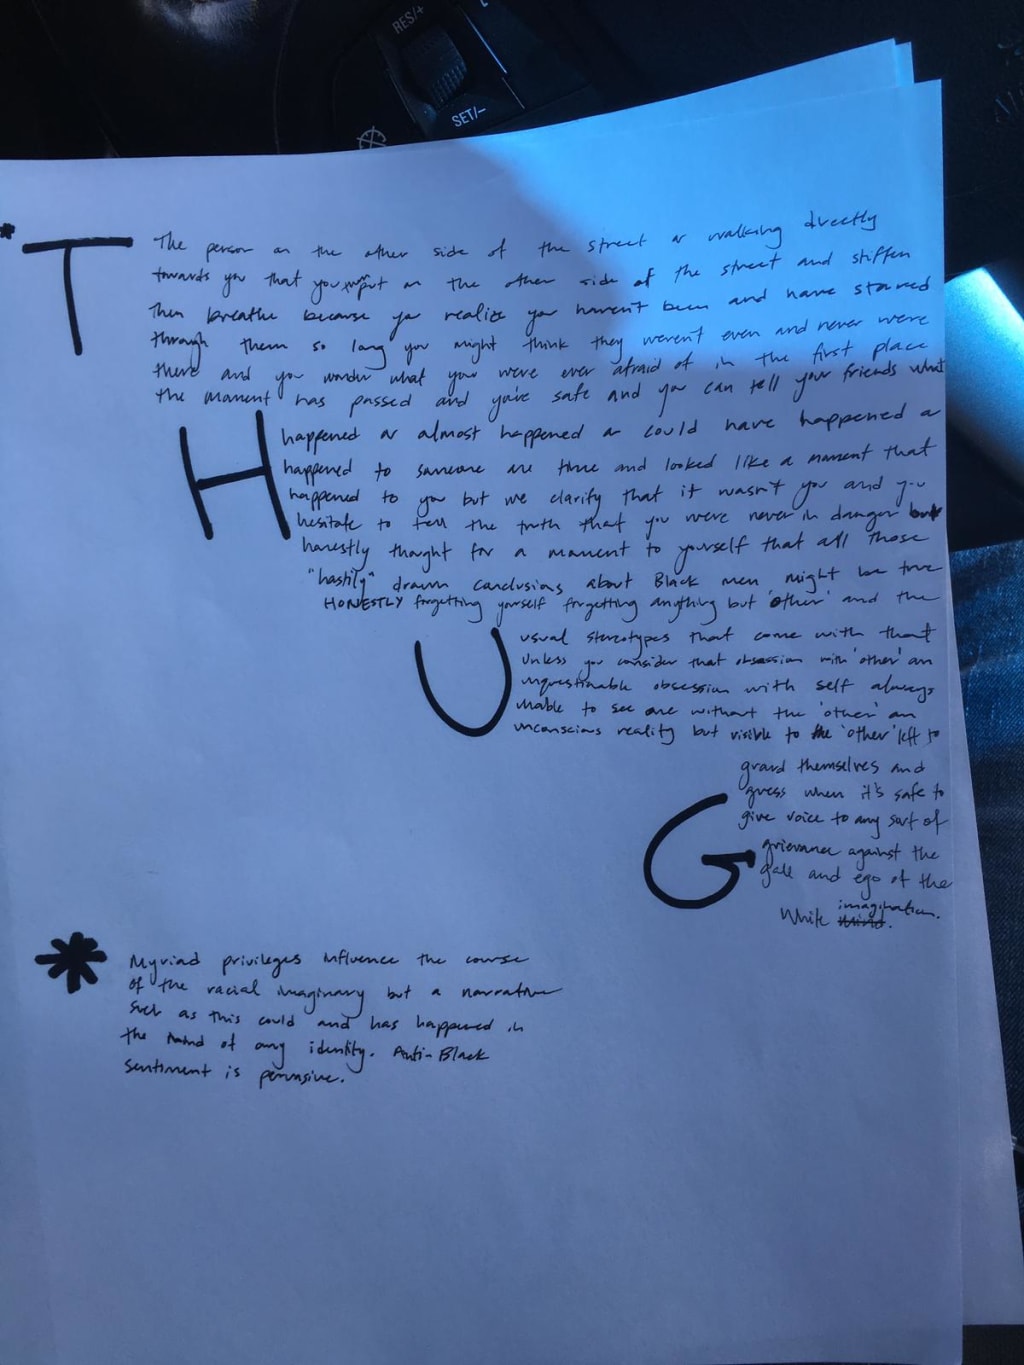 RES/+
SET/-
*
T
The person on the other side of the street or walking directly
towards you that you put on the other side of the street and stiffen
Then breathe because you realize you haven't been and have stared
through them so long you might think they weren't even and never were
there and you wonder what you were ever afraid of in the first place
the moment has passed and you're safe and you can tell your friends what
H
happened or almost happened or could have happened or
happened to someone one time and looked like a moment that
happened to you but we clarify that it wasn't you and you
hesitate to tell the truth that you were never in danger but
honestly thought for a moment to yourself that all those
"hastily" drawn conclusions about Black men might be true
HONESTLY forgetting yourself forgetting anything but 'other' and the
U
usual stereotypes that come with that
Unless you consider that obsession with 'other' an
unquestionable obsession with self always
unable to see one without the 'other' an
unconscious reality but visible to the 'other' left to
G
guard themselves and
guess when it's safe to
give voice to any sort of
grievance against the
gall and ego of the
imagination.
White Mind.
*
Myriad privileges influence the course
of the racial imaginary but a narrative
such as this could and has happened in
the mind of any identity. Anti-Black
sentiment is pervasive.